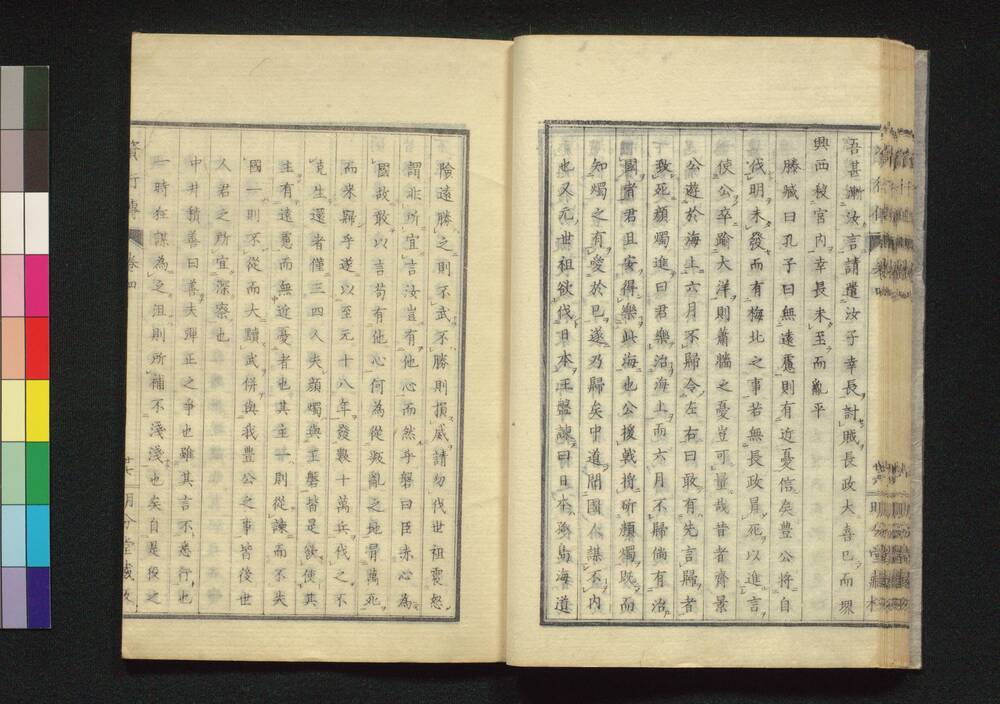 吾甚慚汝言請遣汝子幸長討賊長政大喜已而堺
興西稜官内幸長未至而亂平
勝臧曰孔子曰無遠慮則有近憂信矣豊公將自
伐明未發而有梅北之事若無長政冒死以進言
使公卒踰大洋則蕭牆之憂豈可量哉昔者齊景
公遊於海上六月不歸令左右曰敢有先言歸者
致死顔燭進曰君樂治海上而六月不歸倘有治
國者君且安得樂此海也公援戟將斫顔燭既而
知燭之有愛於已遂乃歸矣中道聞國人謀不内
也又元世祖欲伐日本王磐諫曰日本孤島海道
險遠勝之則不武不勝則損威請勿伐世祖震怒
謂非所宜言汝豈有他心而然乎磐曰臣赤心為
國故敢以言苟有他心何為從叛亂之地冒萬死
而來歸乎遂以至元十八年發數十萬兵伐之不
克生還者僅三四人夫顔燭與王磐皆是欲使其
主有遠慮而無近憂者也其主一則從諫而不失
國一則不從而大黷武併與我豊公之事皆後世
人君之所宜深察也
中井積善曰善夫彈正之爭也雖其言不悉行也
一時狂謀為之沮則所補不淺淺也矣自是役之